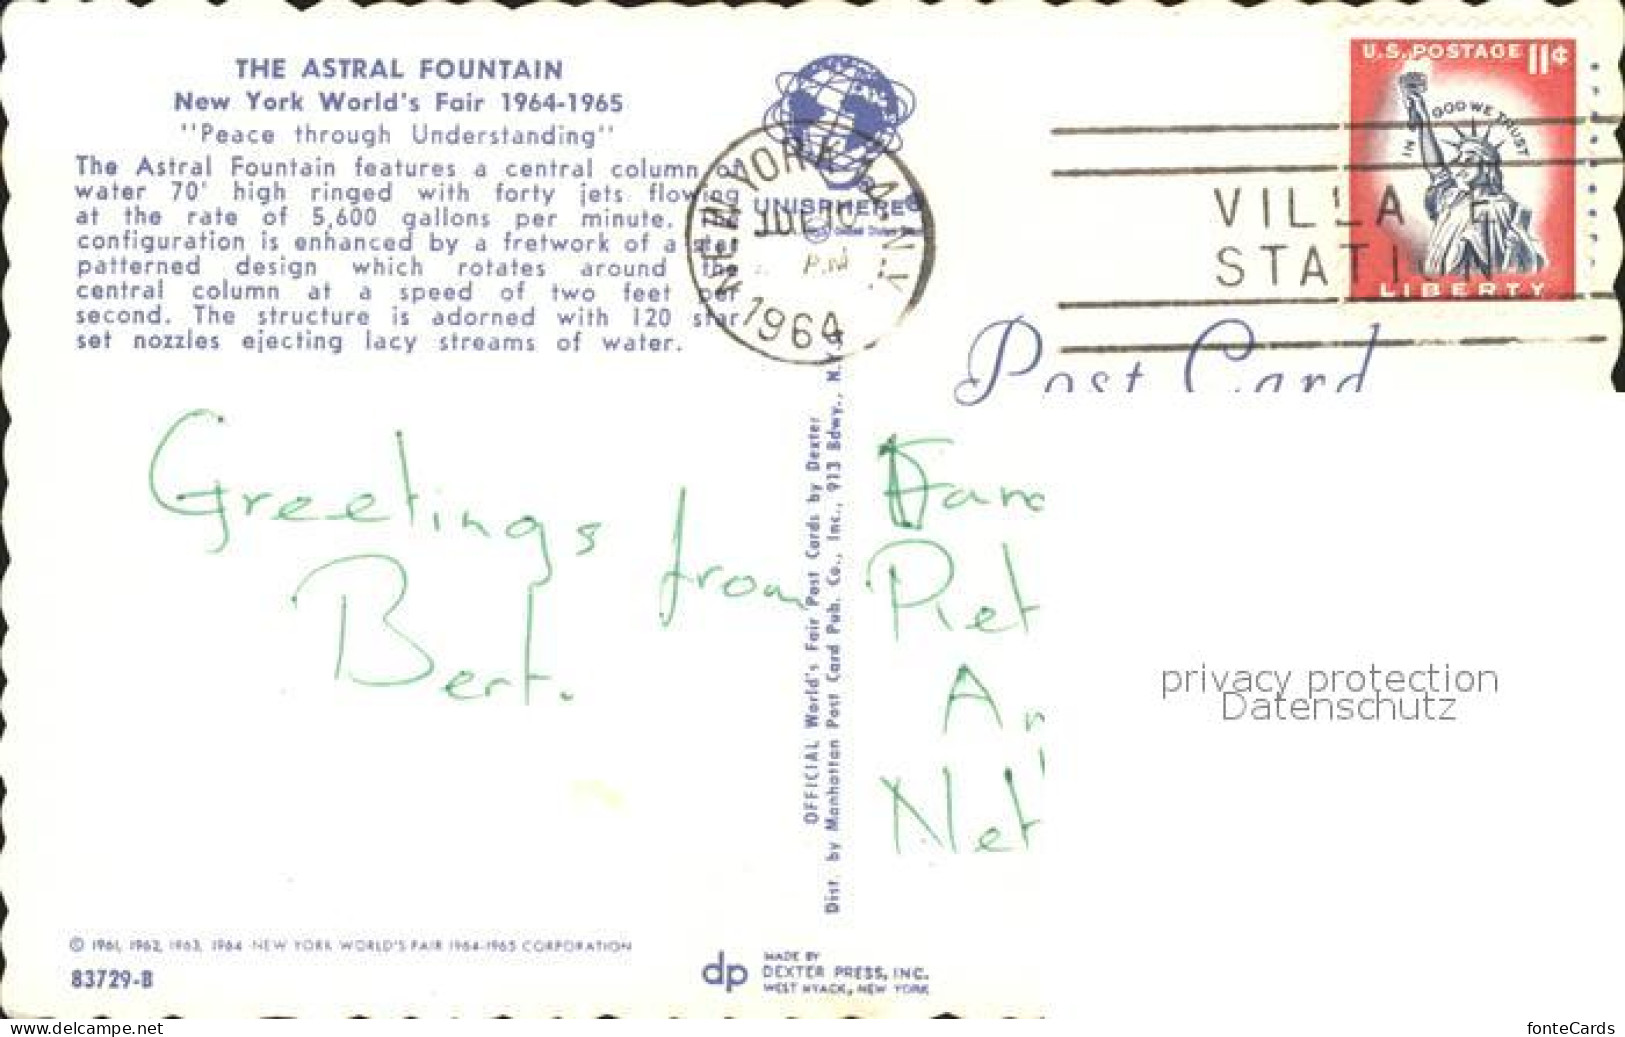 THE ASTRAL FOUNTAIN
New York World's Fair 1964-1965
"Peace through Understanding"
The Astral Fountain features a central column of
water 70' high ringed with forty jets flowing
at the rate of 5,600 gallons per minute. The
configuration is enhanced by a fretwork of a star
patterned design which rotates around the
central column at a speed of two feet per
second. The structure is adorned with 120 star
set nozzles ejecting lacy streams of water.
UNISPHERE®
NEW YORK, N.Y.
JUL 10
PM
1964
VILLAGE
STATION
U.S. POSTAGE 11¢
IN GOD WE TRUST
LIBERTY
Post Card
Greetings from
Bert.
Fam
Piet
A
Net
OFFICIAL World's Fair Post Cards by Dexter
Dist. by Manhattan Post Card Pub. Co., Inc., 913 Bdwy., N.Y.
privacy protection
Datenschutz
© 1961, 1962, 1963, 1964 NEW YORK WORLD'S FAIR 1964-1965 CORPORATION
83729-B
dp
MADE BY
DEXTER PRESS, INC.
WEST NYACK, NEW YORK
www.delcampe.net
fonteCards